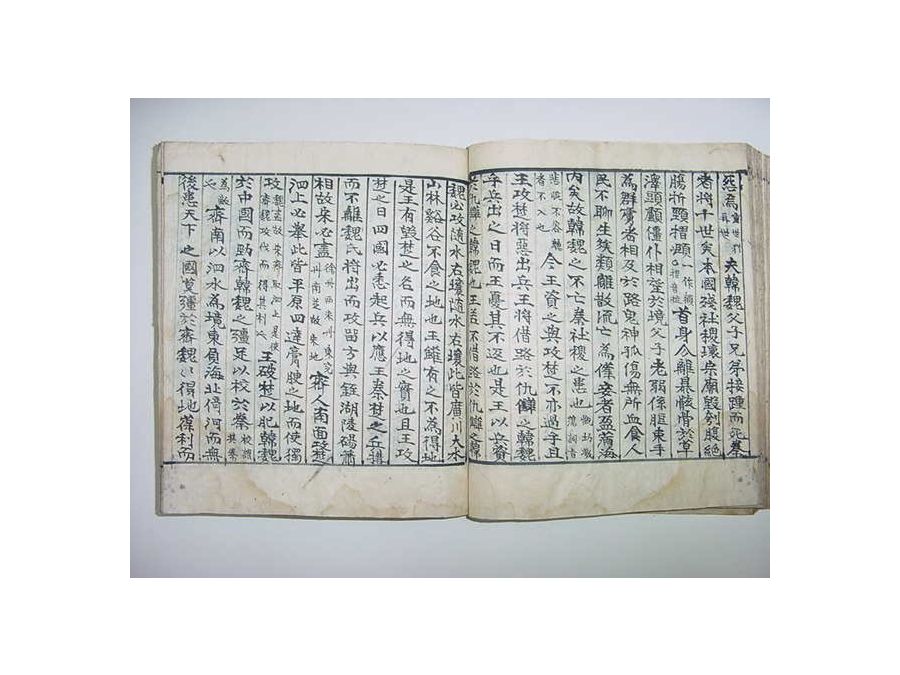 夫韓魏父子兄弟接踵而死秦
者將十世矣本國殘社稷壞宗廟毁刳腹絶
腸折頸摺頤一作 首身分離暴骸骨於草
澤頭顱僵仆相望於境父子老弱係脰束手
為群虜者相及於路鬼神孤傷無所血食人
民不聊生族類離散流亡為僕妾者盈滿海
内矣故韓魏之不亡秦社稷之患也
者不入也 今王資之與攻楚不亦過乎且
王攻楚將惡出兵王將借路於仇讎之韓魏
乎兵出之日而王憂其不返也是王以兵資
於仇讎之韓魏也王若不借路於仇讎之韓
魏必攻隨水右壤隨水右壤此皆廣川大水
山林谿谷不食之地也王雖有之不為得地
是王有毁楚之名而無得地之實也且王攻
楚之日四國必悉起兵以應王秦楚之兵構
而不離魏氏將出而攻留方與銍湖陵碭蕭
相故宋必盡 齊人南面攻楚
泗上必舉此皆平原四達膏腴之地而使獨
攻 王破楚以肥韓魏
於中國而勁齊韓魏之彊足以校於秦
為敵也 齊南以泗水為境東負海北倚河而無
後患天下之國莫彊於齊魏〻得地葆利而